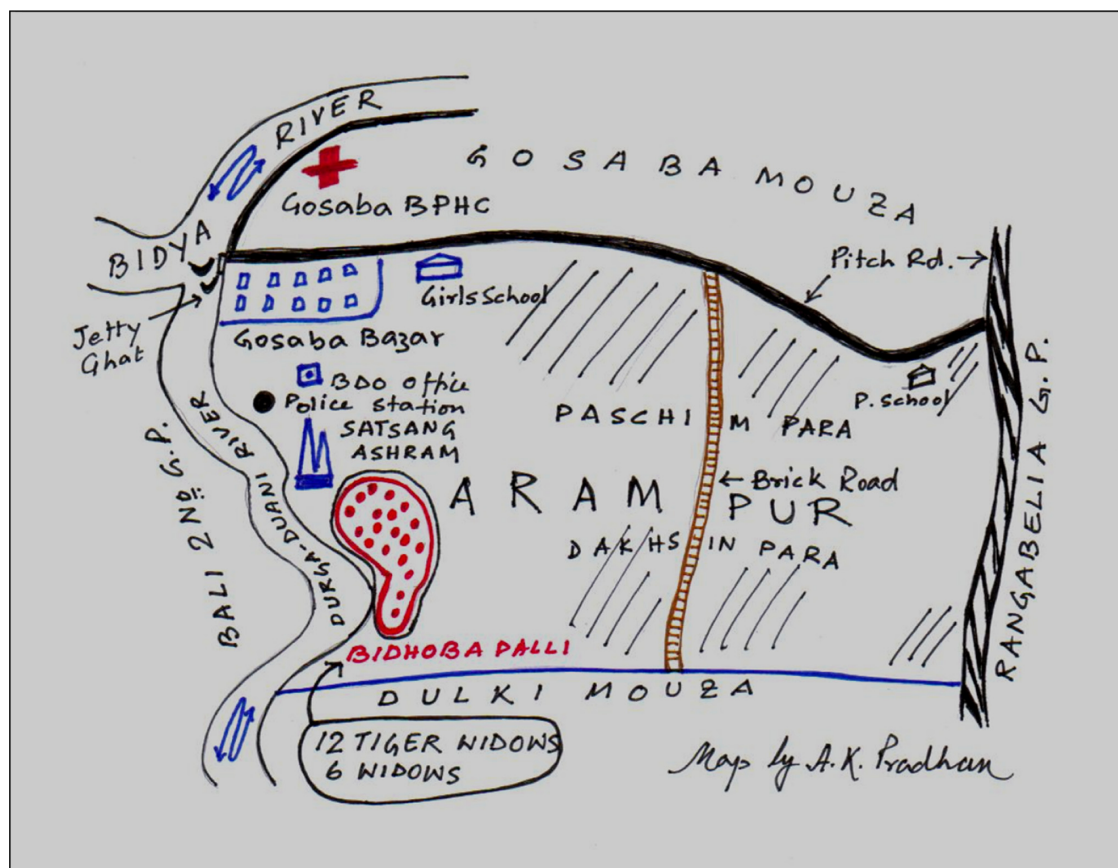 BIDYA RIVER
GOSABA MOUZA
Gosaba BPHC
Pitch Rd.
Jetty
Ghat
Girls School
Gosaba Bazar
P. School
BDO Office
Police Station
SATSANG
ASHRAM
PASCHIM PARA
ARAMPUR
Brick Road
DAKHSIN PARA
BALI 2ND G.P.
DURGA-DUANI RIVER
RANGABELIA G.P.
BIDHOBA PALLI
DULKI MOUZA
12 TIGER WIDOWS
6 WIDOWS
Map by A.K. Pradhan